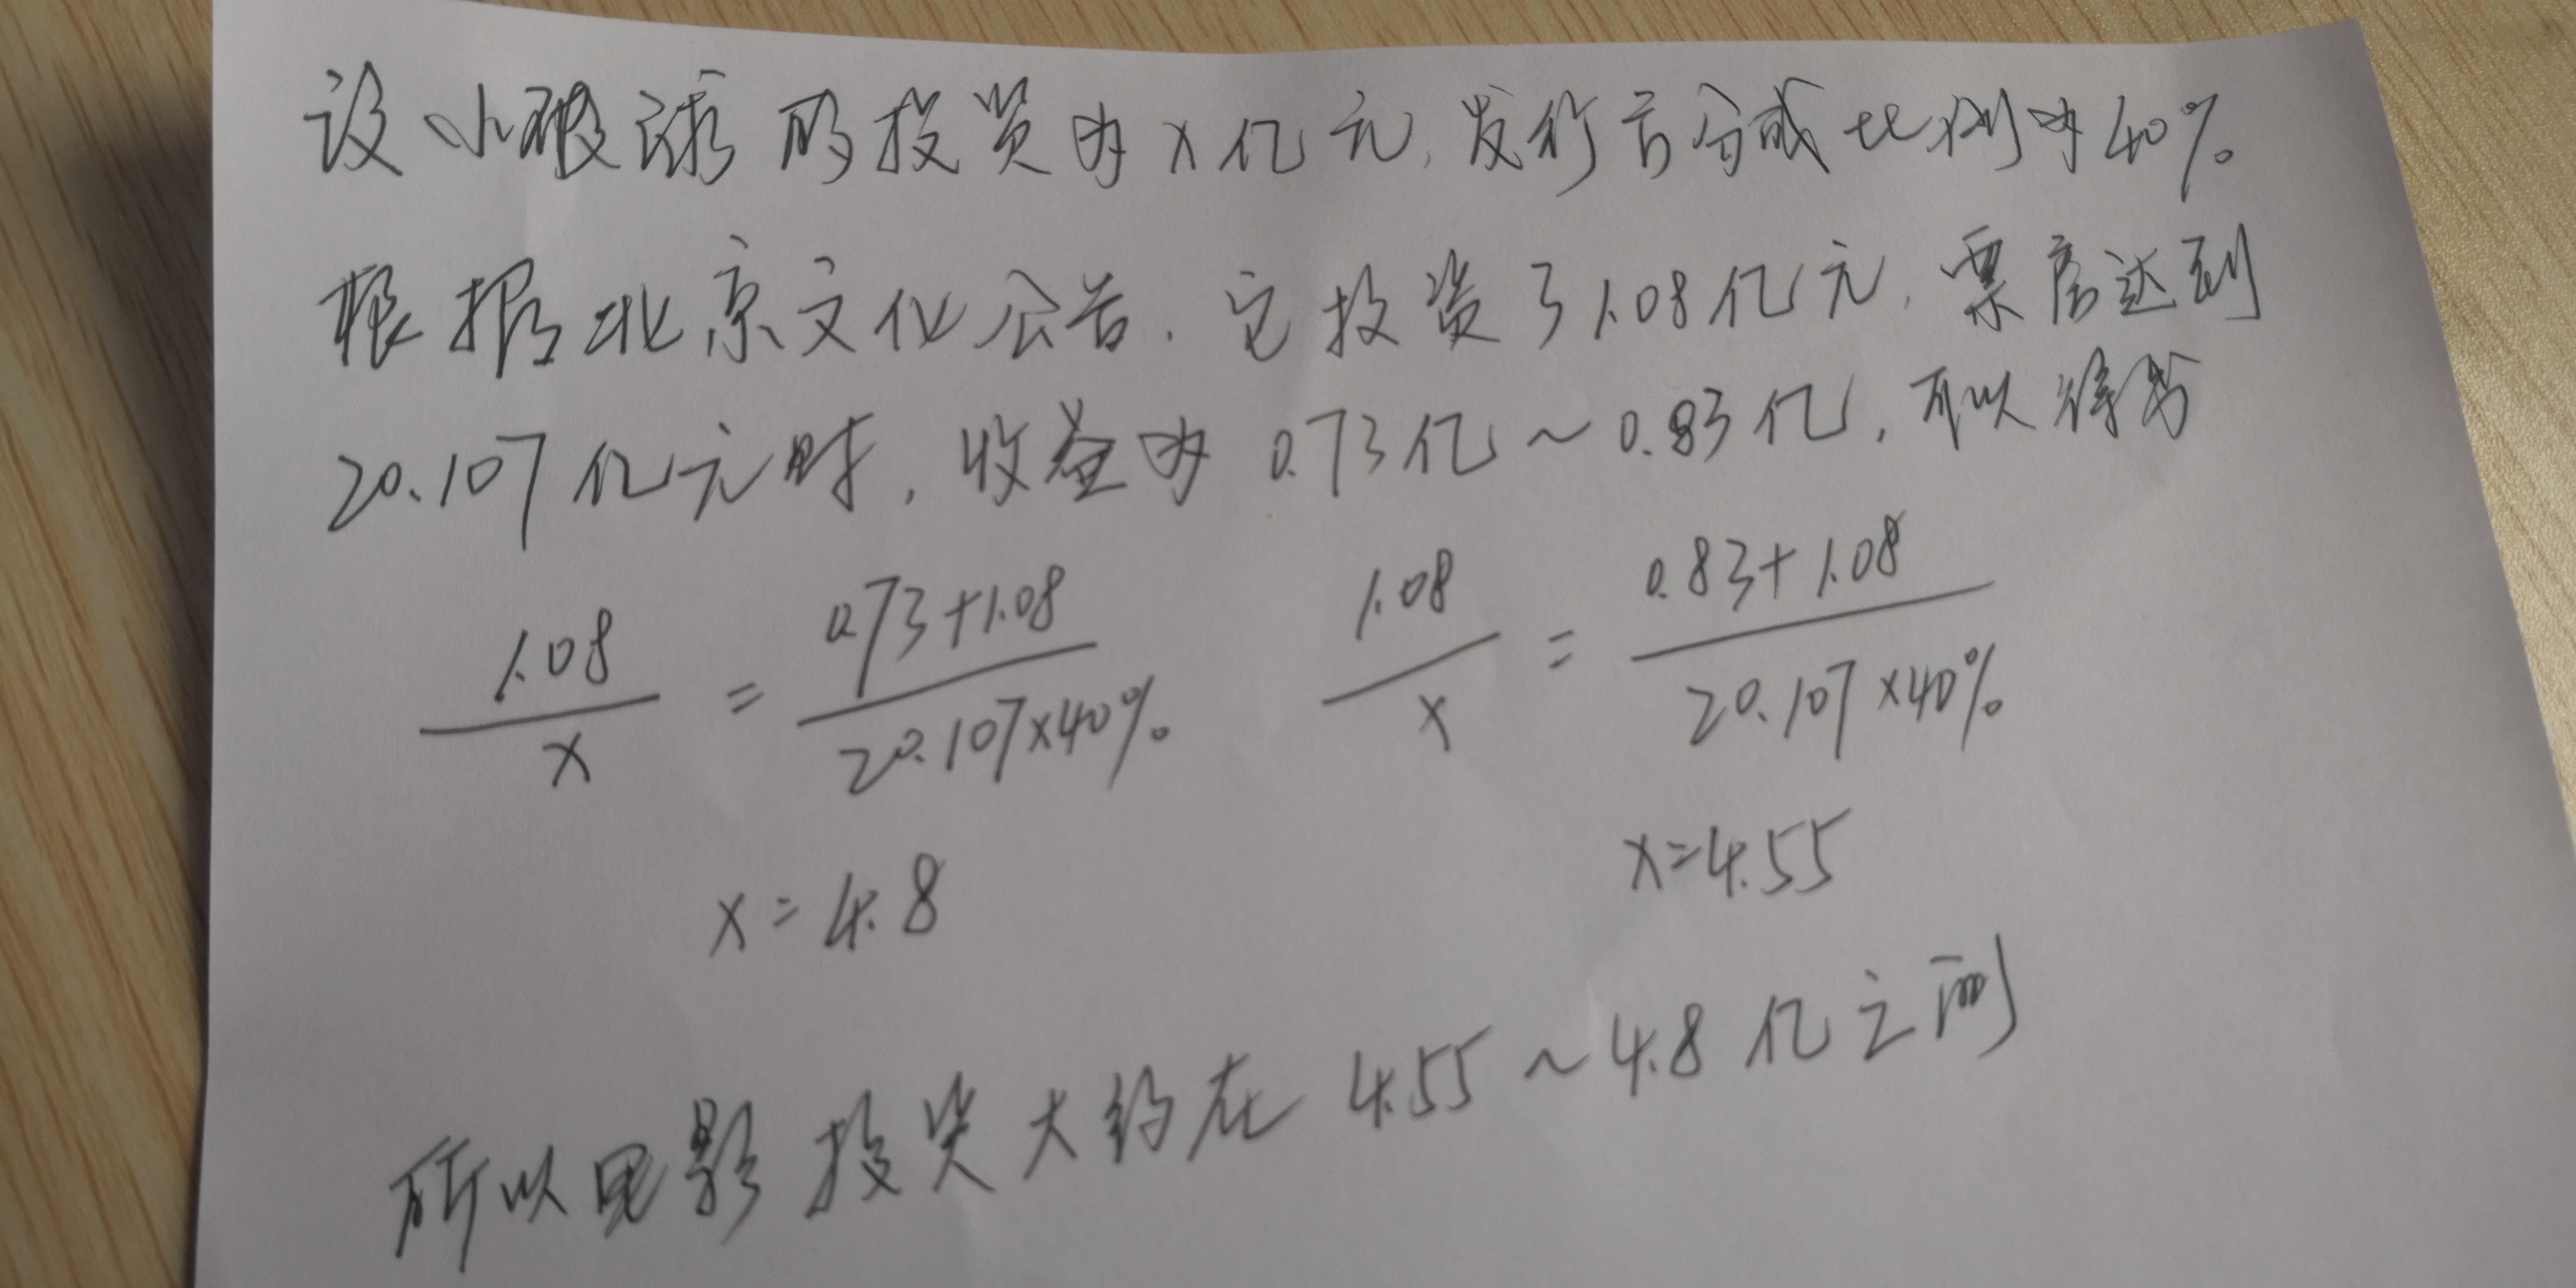 设小破球的投资为x亿元,发行方分成比例为40%
根据北京文化公告,它投资了1.08亿元,票房达到
20.107亿元时,收益为0.73亿~0.83亿,可以得出
1.08/x = (0.73+1.08)/(20.107×40%) 1.08/x = (0.83+1.08)/(20.107×40%)
x=4.8 x=4.55
所以电影投资大约在4.55~4.8亿之间